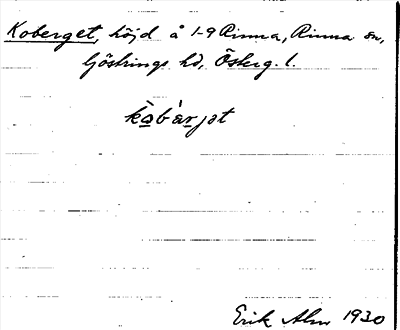 Koberget, höjd å 1-9 Rinna, Rinna sn,
Göstrings hd, Österg. l.
kòbær̀jət
Erik Alm 1930